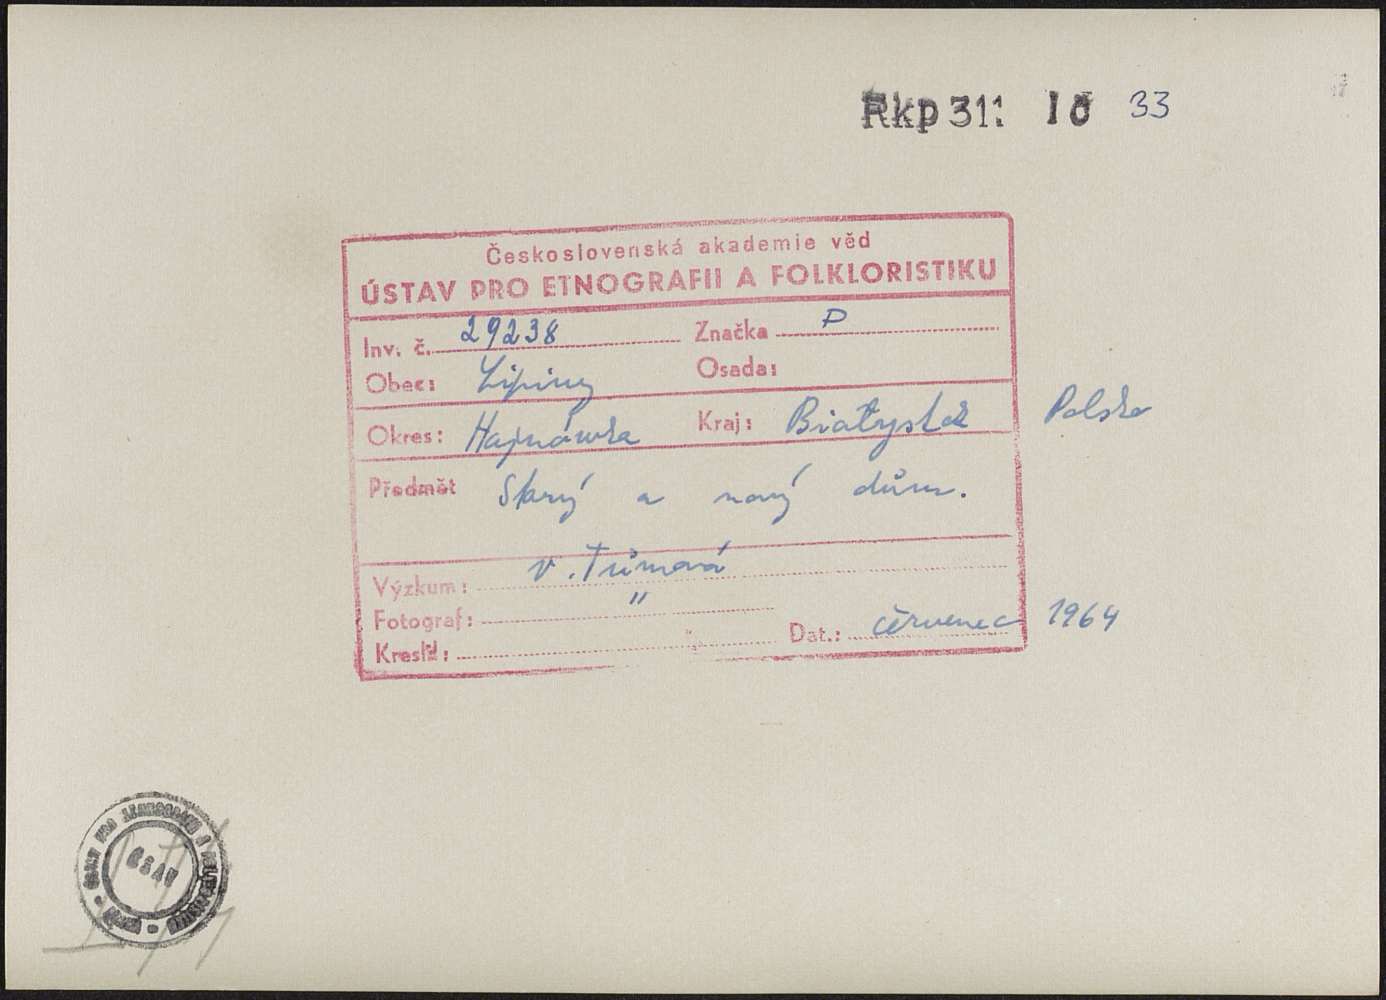 Rkp 311 10 33
Československá akademie věd
ÚSTAV PRO ETNOGRAFII A FOLKLORISTIKU
Inv. č. 29238 Značka P
Obec: Lipiny Osada:
Okres: Hajnówka Kraj: Białystok Polsko
Předmět Starý a nový dům.
Výzkum: V. Tůmová
Fotograf: "
Kreslil: Dat.: červenec 1964
ČSAV